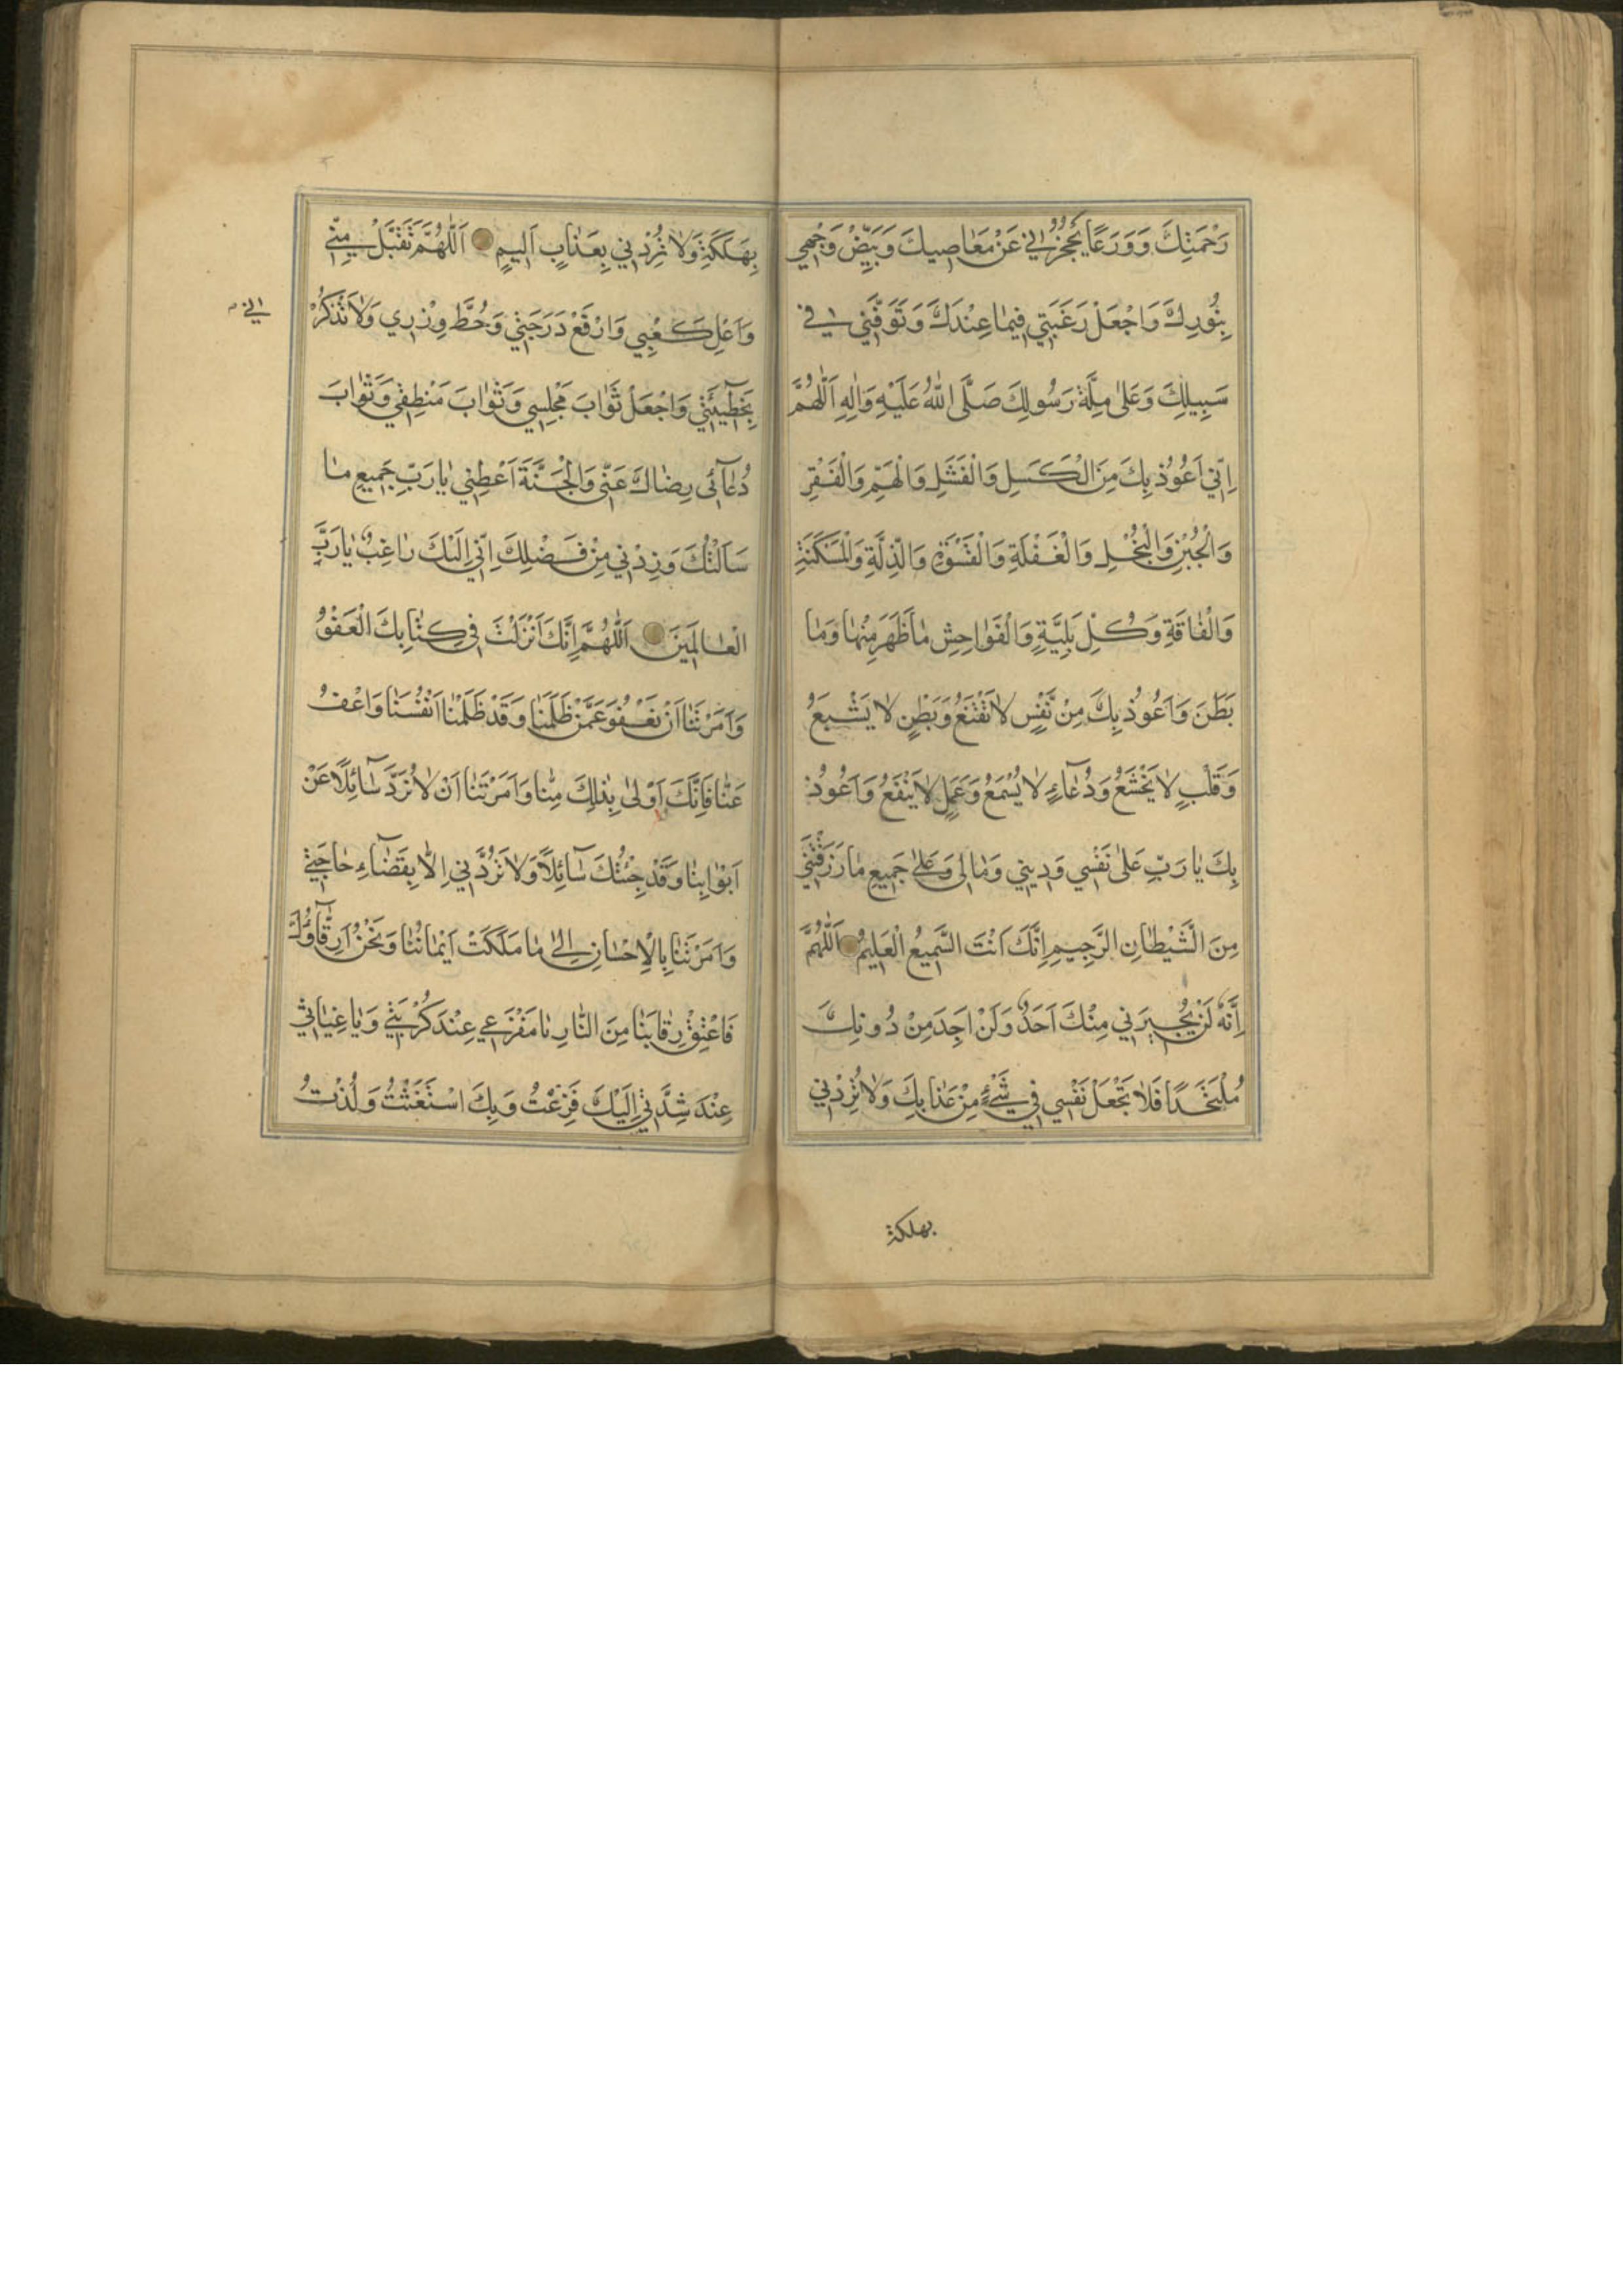 رَحْمَتِكَ وَوَرَعًا يَحْجُزُنِي عَنْ مَعَاصِيكَ وَبَيِّضْ وَجْهِي
بِنُورِكَ وَاجْعَلْ رَغْبَتِي فِيمَا عِنْدَكَ وَتَوَفَّنِي فِي
سَبِيلِكَ وَعَلَى مِلَّةِ رَسُولِكَ صَلَّى اللهُ عَلَيْهِ وَآلِهِ اَللّٰهُمَّ
اِنِّي اَعُوذُ بِكَ مِنَ الْكَسَلِ وَالْفَشَلِ وَالْهَمِّ وَالْفَقْرِ
وَالْجُبْنِ وَالْبُخْلِ وَالْغَفْلَةِ وَالْقَسْوَةِ وَالذِّلَّةِ وَالْمَسْكَنَةِ
وَالْفَاقَةِ وَكُلِّ بَلِيَّةٍ وَالْفَوَاحِشِ مَا ظَهَرَ مِنْهَا وَمَا
بَطَنَ وَاَعُوذُ بِكَ مِنْ نَفْسٍ لَا تَقْنَعُ وَبَطْنٍ لَا يَشْبَعُ
وَقَلْبٍ لَا يَخْشَعُ وَدُعَاءٍ لَا يُسْمَعُ وَعَمَلٍ لَا يَنْفَعُ وَاَعُوذُ
بِكَ يَا رَبِّ عَلَى نَفْسِي وَدِينِي وَمَالِي وَعَلَى جَمِيعِ مَا رَزَقْتَنِي
مِنَ الشَّيْطَانِ الرَّجِيمِ اِنَّكَ اَنْتَ السَّمِيعُ الْعَلِيمُ اَللّٰهُمَّ
اِنَّهُ لَنْ يُجِيرَنِي مِنْكَ اَحَدٌ وَلَنْ اَجِدَ مِنْ دُونِكَ
مُلْتَحَدًا فَلَا تَجْعَلْ نَفْسِي فِي شَيْءٍ مِنْ عَذَابِكَ وَلَا تُرِدْنِي
بهلكة
بِهَلَكَةٍ وَلَا تُرِدْنِي بِعَذَابٍ اَلِيمٍ اَللّٰهُمَّ تَقَبَّلْ مِنِّي
وَاَعْلِ كَعْبِي وَارْفَعْ دَرَجَتِي وَحُطَّ وِزْرِي وَلَا تَذْكُرْ
بِخَطِيئَتِي وَاجْعَلْ ثَوَابَ مَجْلِسِي وَثَوَابَ مَنْطِقِي وَثَوَابَ
دُعَائِي رِضَاكَ عَنِّي وَالْجَنَّةَ اَعْطِنِي يَا رَبِّ جَمِيعَ مَا
سَاَلْتُكَ وَزِدْنِي مِنْ فَضْلِكَ اِنِّي اِلَيْكَ رَاغِبٌ يَا رَبَّ
الْعَالَمِينَ اَللّٰهُمَّ اِنَّكَ اَنْزَلْتَ فِي كِتَابِكَ الْعَفْوَ
وَاَمَرْتَنَا اَنْ نَعْفُوَ عَمَّنْ ظَلَمَنَا وَقَدْ ظَلَمْنَا اَنْفُسَنَا وَاعْفُ
عَنَّا فَاِنَّكَ اَوْلَى بِذٰلِكَ مِنَّا وَاَمَرْتَنَا اَنْ لَا نَرُدَّ سَائِلًا عَنْ
اَبْوَابِنَا وَقَدْ جِئْتُكَ سَائِلًا وَلَا تَرُدَّنِي اِلَّا بِقَضَاءِ حَاجَتِي
وَاَمَرْتَنَا بِالْاِحْسَانِ اِلَى مَا مَلَكَتْ اَيْمَانُنَا وَنَحْنُ اَرِقَّاؤُكَ
فَاَعْتِقْ رِقَابَنَا مِنَ النَّارِ يَا مَفْزَعِي عِنْدَ كُرْبَتِي وَيَا غِيَاثِي
عِنْدَ شِدَّتِي اِلَيْكَ فَزِعْتُ وَبِكَ اسْتَغَثْتُ وَلُذْتُ